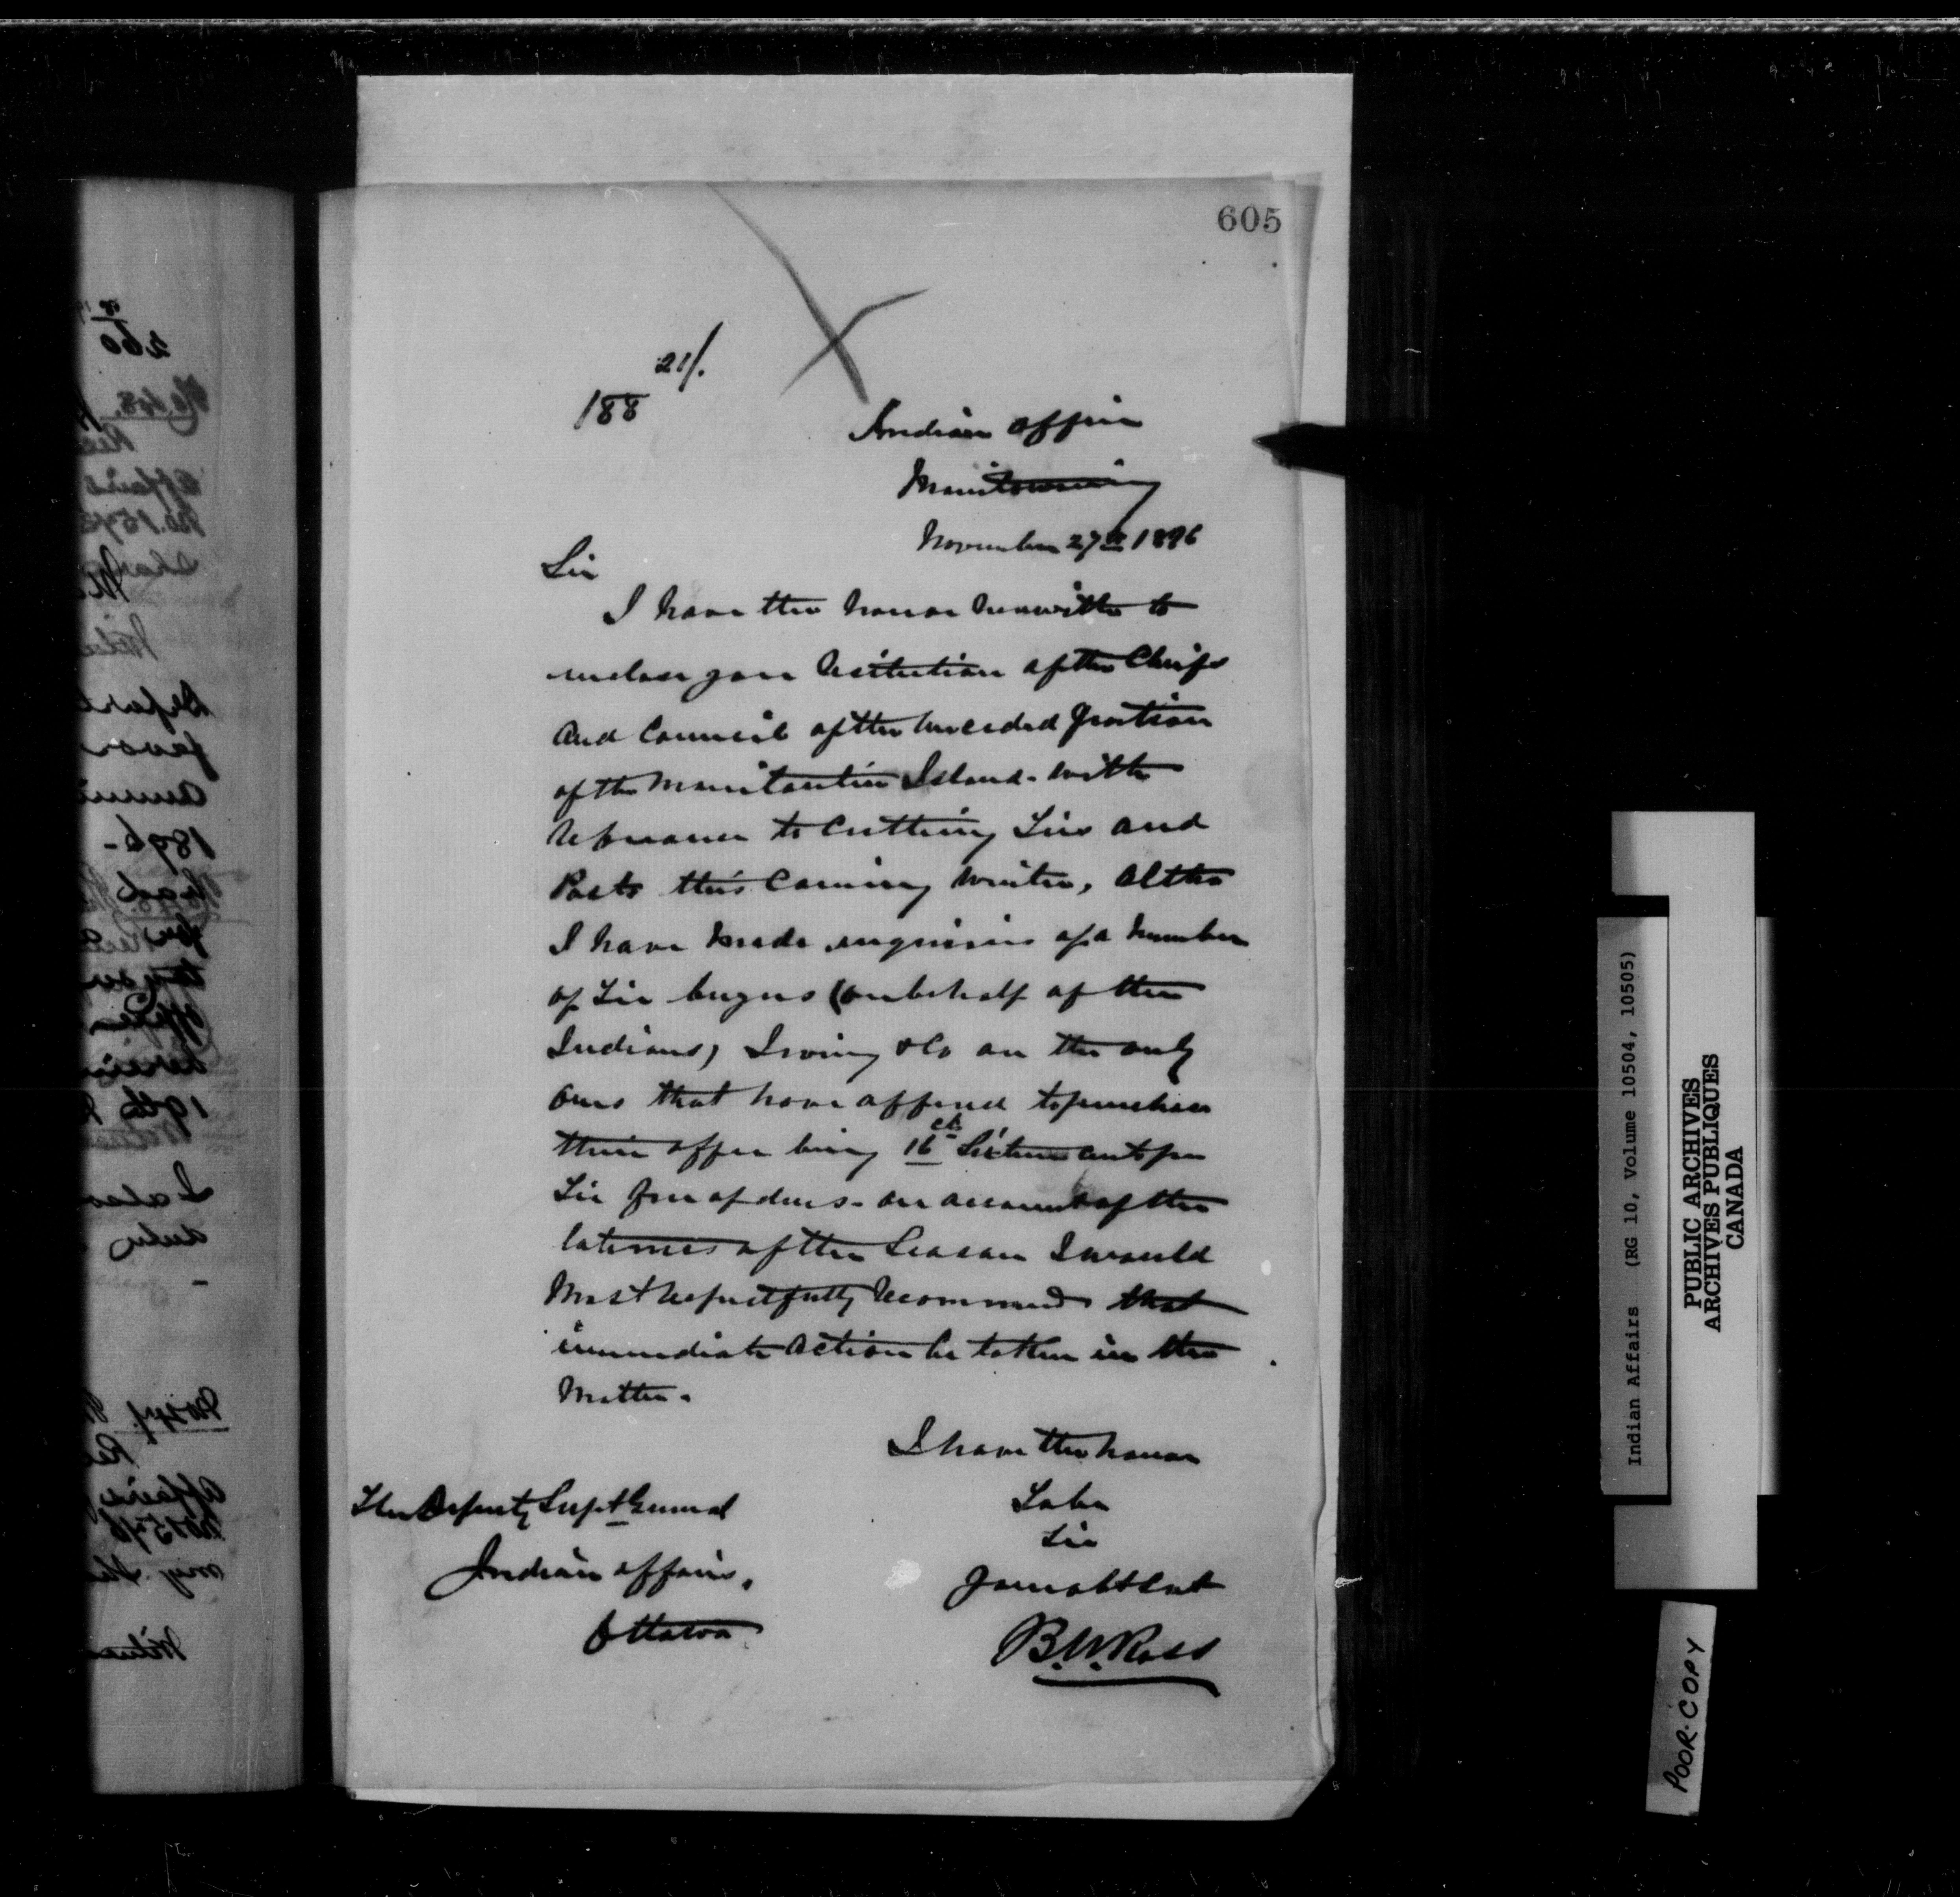 605
21/.
188
Indian Office
Manitowaning
November 27th 1896
Sir
I have the honor herewith to
enclose you Resolution of the Chiefs
and Council of the Unceded portion
of the Manitoulin Island. with
reference to Cutting Ties and
Posts this Coming Winter, Altho
I have made enquiries of a number
of Tie buyers (on behalf of the
Indians) Irving & Co are the only
ones that have offered to purchase
their offer being 16 cts Sixteen cents per
Tie free of dues. on account of the
lateness of the Season I would
Most respectfully recommend that
immediate Action be taken in the
Matter.
I have the honor
To be
Sir
Your obt Servt
B.W. Ross
The Deputy Supt General
Indian Affairs,
Ottawa
Indian Affairs (RG 10, Volume 10504, 10505)
PUBLIC ARCHIVES
ARCHIVES PUBLIQUES
CANADA
POOR-COPY